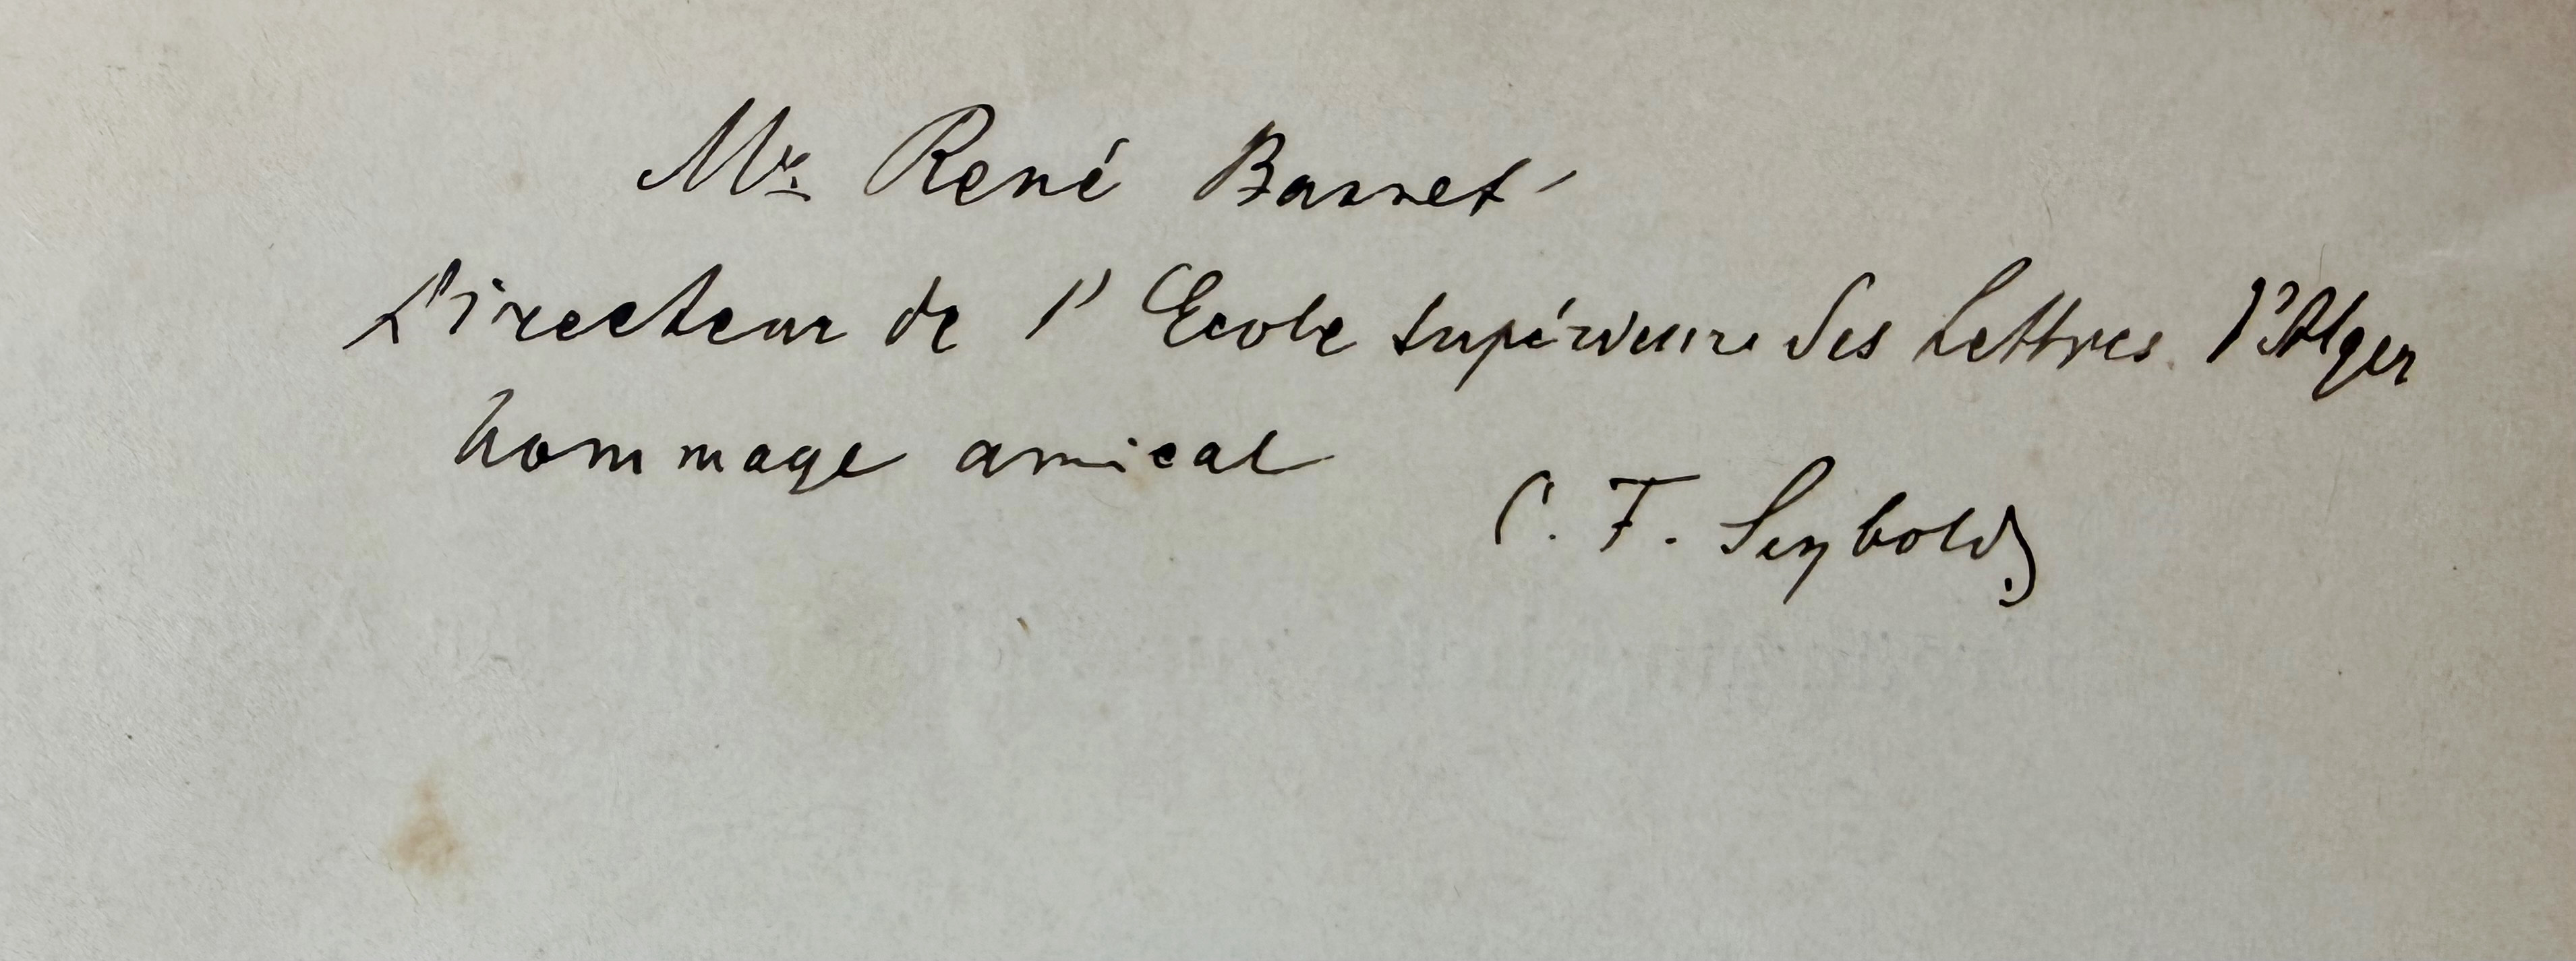 Mr René Basset
Directeur de l'Ecole supérieure des Lettres d'Alger
hommage amical
C. F. Seybold